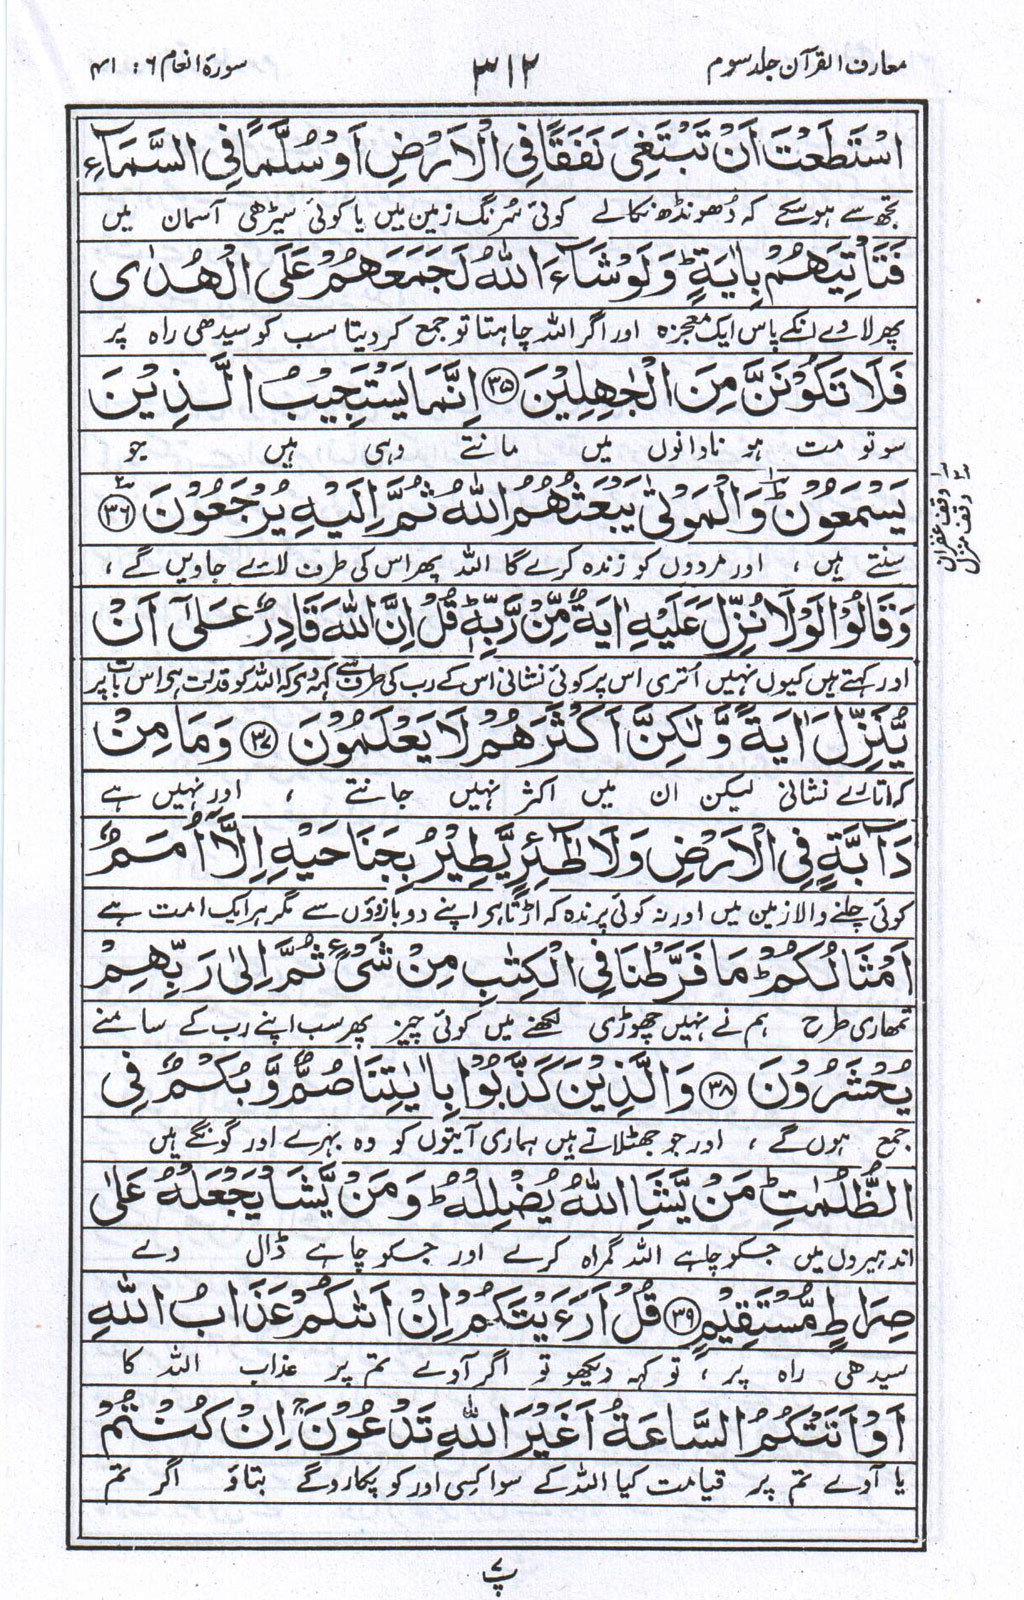 معارف القرآن جلد سوم
۳۱۲
سورۃ انعام ۶ : ۴۱
اسْتَطَعْتَ اَنْ تَبْتَغِیَ نَفَقًا فِی الْاَرْضِ اَوْ سُلَّمًا فِی السَّمَآءِ
تجھ سے ہو سکے کہ ڈھونڈھ نکالے کوئی سُرنگ زمین میں یا کوئی سیڑھی آسمان میں
فَتَاْتِیَهُمْ بِاٰیَةٍ ؕ وَلَوْ شَآءَ اللّٰهُ لَجَمَعَهُمْ عَلَی الْهُدٰی
پھر لاوے انکے پاس ایک معجزہ اور اگر اللہ چاہتا تو جمع کر دیتا سب کو سیدھی راہ پر
فَلَا تَكُوْنَنَّ مِنَ الْجٰهِلِیْنَ ﴿۳۵﴾ اِنَّمَا یَسْتَجِیْبُ الَّذِیْنَ
سو تو مت ہو نادانوں میں مانتے وہی ہیں جو
یَسْمَعُوْنَ ؕ وَالْمَوْتٰی یَبْعَثُهُمُ اللّٰهُ ثُمَّ اِلَیْهِ یُرْجَعُوْنَ ﴿۳۶﴾
وقف غفران
وقف منزل
سنتے ہیں ، اور مردوں کو زندہ کرے گا اللہ پھر اس کی طرف لائے جاویں گے ،
وَقَالُوْا لَوْلَا نُزِّلَ عَلَیْهِ اٰیَةٌ مِّنْ رَّبِّهٖ ؕ قُلْ اِنَّ اللّٰهَ قَادِرٌ عَلٰۤی اَنْ
اور کہتے ہیں کیوں نہیں اُتری اس پر کوئی نشانی اس کے رب کی طرف سے کہہ دے کہ اللہ کو قدرت ہی اس بات پر
یُّنَزِّلَ اٰیَةً وَّلٰكِنَّ اَكْثَرَهُمْ لَا یَعْلَمُوْنَ ﴿۳۷﴾ وَمَا مِنْ
کہ اتارے نشانی لیکن ان میں اکثر نہیں جانتے ، اور نہیں ہے
دَآبَّةٍ فِی الْاَرْضِ وَلَا طٰٓئِرٍ یَّطِیْرُ بِجَنَاحَیْهِ اِلَّاۤ اُمَمٌ
کوئی چلنے والا زمین میں اور نہ کوئی پرندہ کہ اڑتا ہی اپنے دو بازوؤں سے مگر ہر ایک امت ہے
اَمْثَالُكُمْ ؕ مَا فَرَّطْنَا فِی الْكِتٰبِ مِنْ شَیْءٍ ثُمَّ اِلٰی رَبِّهِمْ
تمھاری طرح ہم نے نہیں چھوڑی لکھنے میں کوئی چیز پھر سب اپنے رب کے سامنے
یُحْشَرُوْنَ ﴿۳۸﴾ وَالَّذِیْنَ كَذَّبُوْا بِاٰیٰتِنَا صُمٌّ وَّبُكْمٌ فِی
جمع ہوں گے ، اور جو جھٹلاتے ہیں ہماری آیتوں کو وہ بہرے اور گونگے ہیں
الظُّلُمٰتِ ؕ مَنْ یَّشَاِ اللّٰهُ یُضْلِلْهُ ؕ وَمَنْ یَّشَاْ یَجْعَلْهُ عَلٰی
اندھیروں میں جسکو چاہے اللہ گمراہ کرے اور جسکو چاہے ڈال دے
صِرَاطٍ مُّسْتَقِیْمٍ ﴿۳۹﴾ قُلْ اَرَءَیْتَكُمْ اِنْ اَتٰىكُمْ عَذَابُ اللّٰهِ
سیدھی راہ پر ، تو کہہ دیکھو تو اگر آوے تم پر عذاب اللہ کا
اَوْ اَتَتْكُمُ السَّاعَةُ اَغَیْرَ اللّٰهِ تَدْعُوْنَ ۚ اِنْ كُنْتُمْ
یا آوے تم پر قیامت کیا اللہ کے سوا کسی اور کو پکارو گے بتاؤ اگر تم
پ ۷